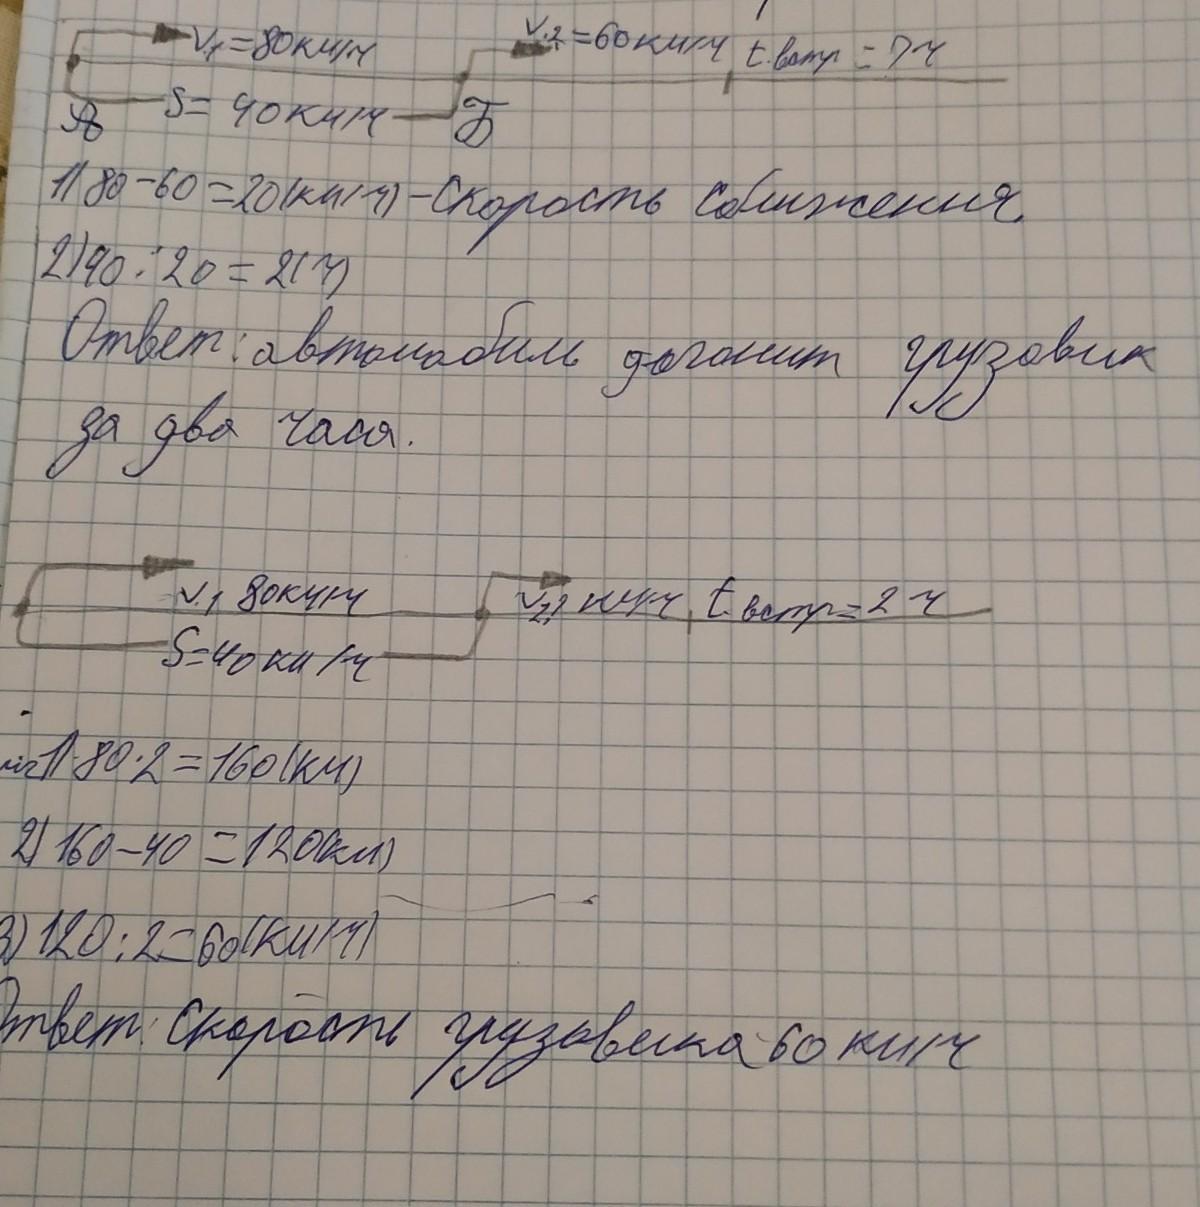 V1=80км/ч V2=60км/ч tвстр=?ч
S=40км/ч
А Б
1) 80-60=20(км/ч)-Скорость сближения.
2) 40:20=2(ч)
Ответ: автомобиль догонит грузовик
за два часа.
V1 80км/ч V2? км/ч tвстр=2ч
S=40км/ч
1) 80·2=160(км)
2) 160-40=120(км)
3) 120:2=60(км/ч)
Ответ: Скорость грузовика 60км/ч